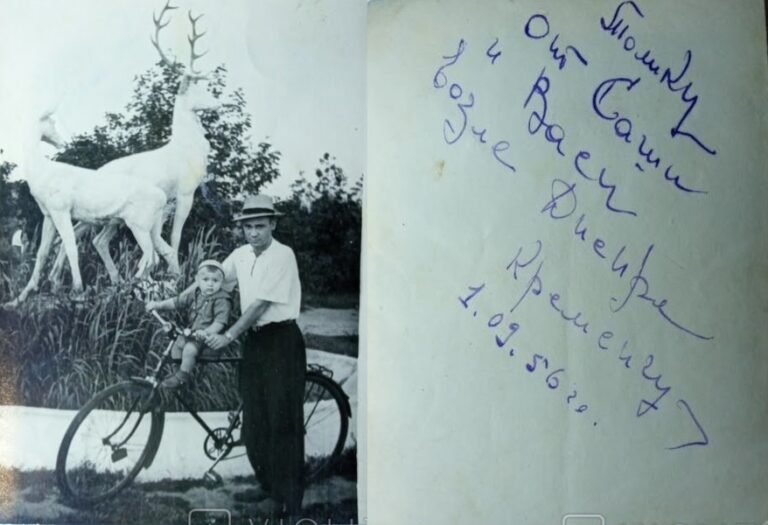 Толику
от Саши
и Васи
возле Днепра
Кременчуг
1.09.56 г.